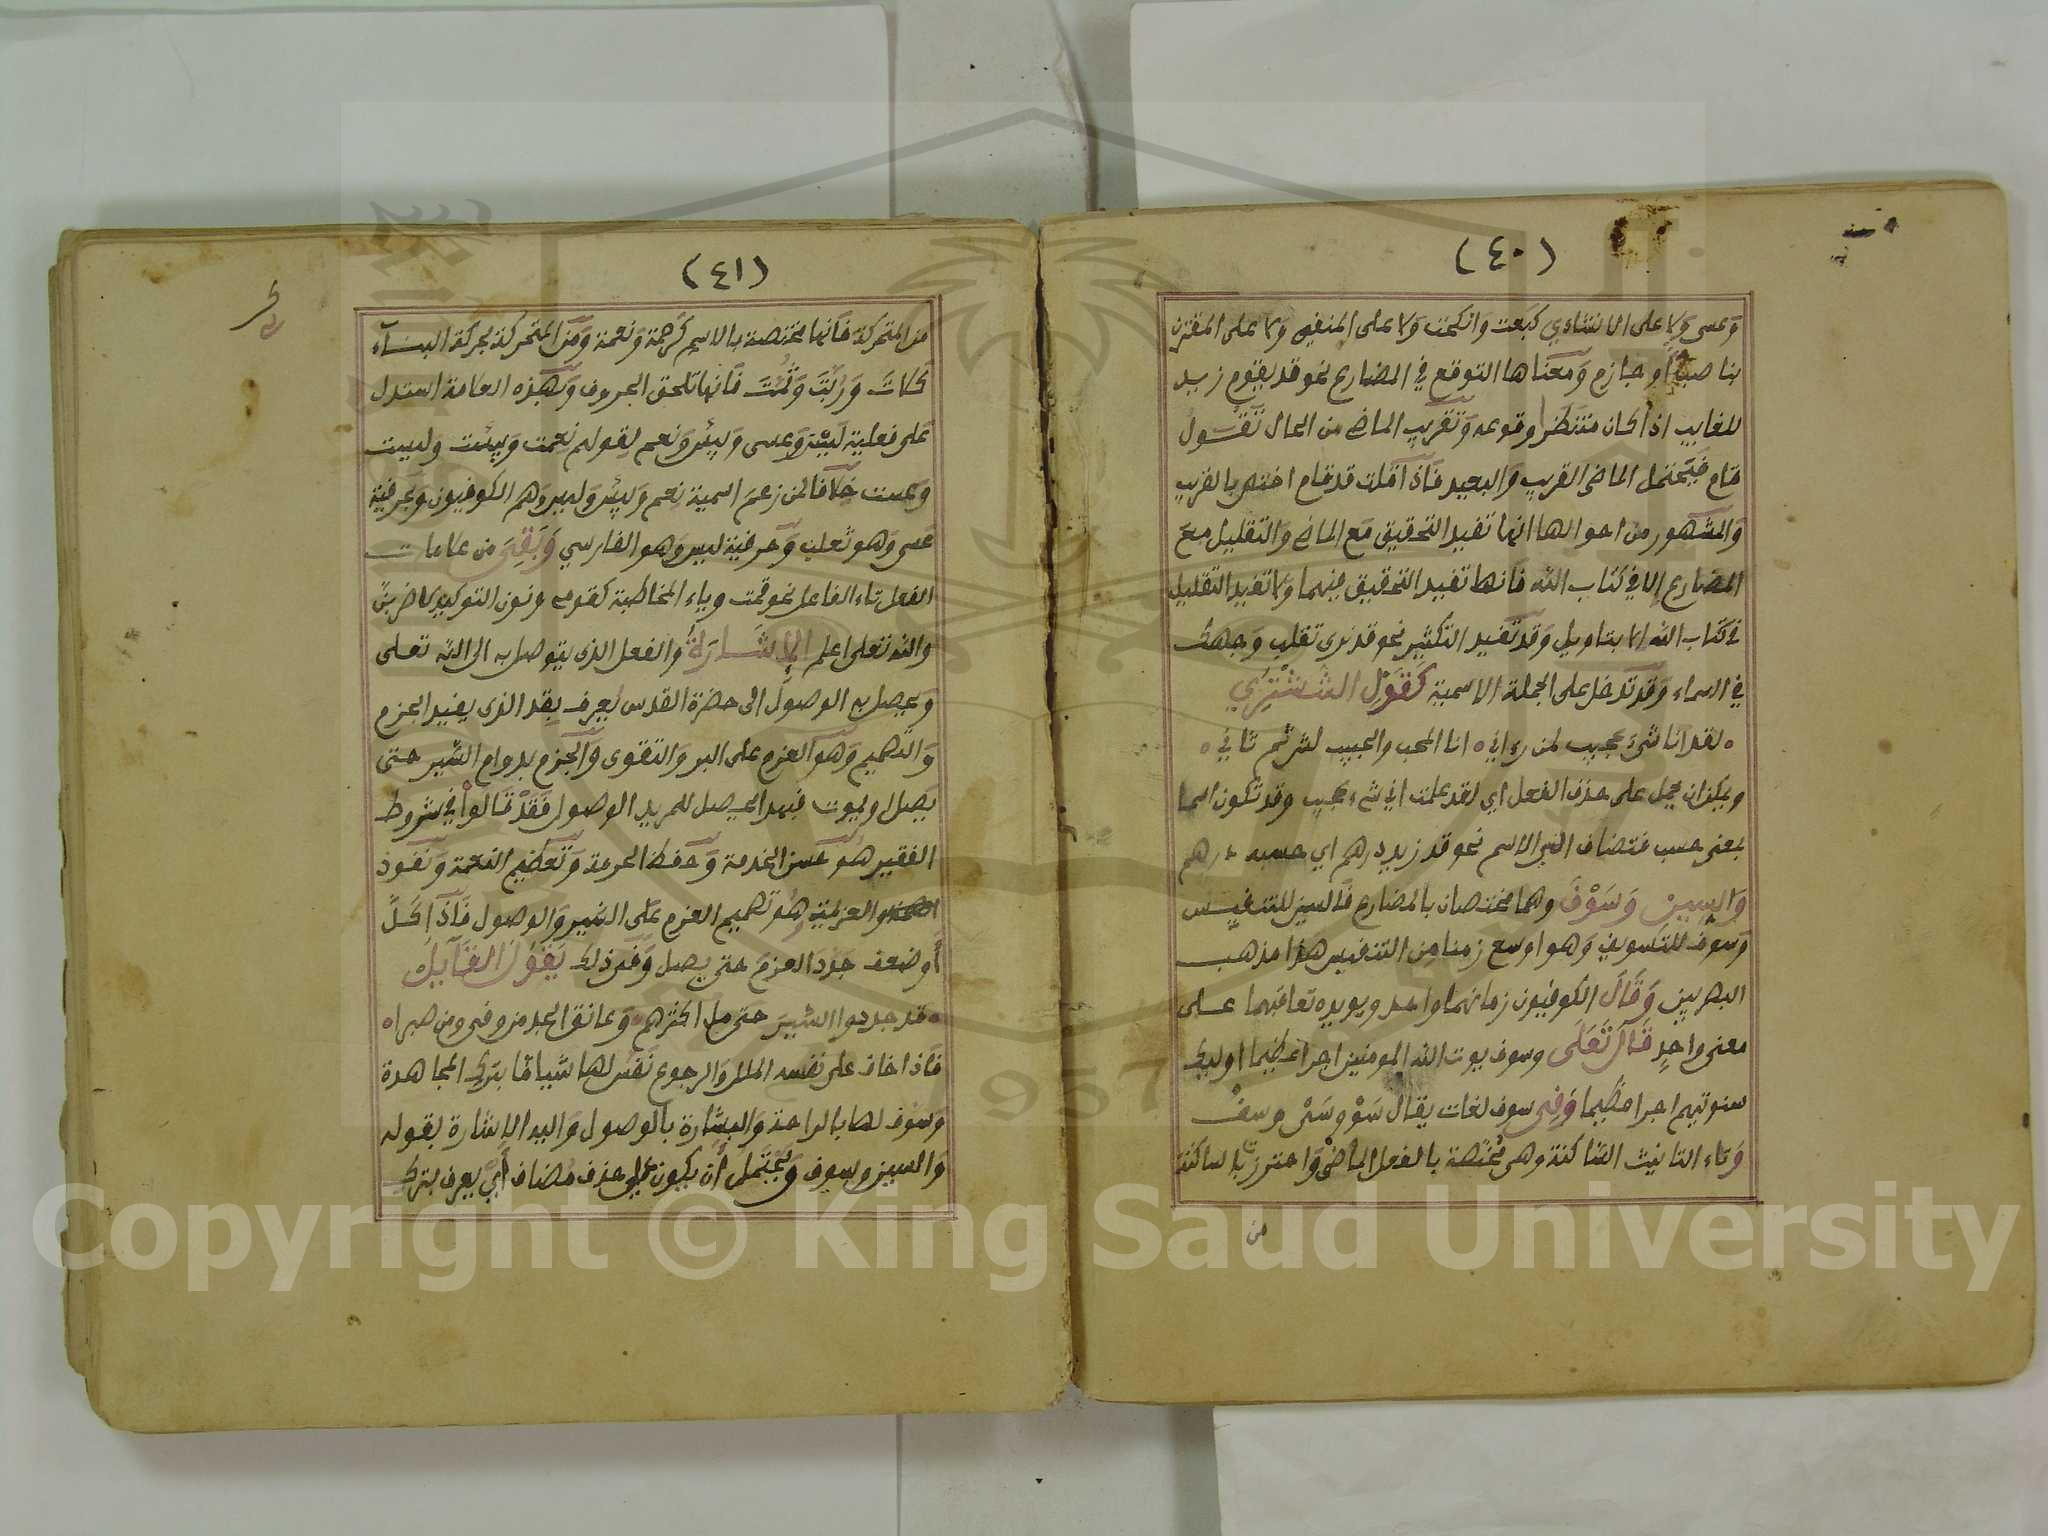 (٤٠)
وعسى ولا على الانشاءي كبعت وانكحت ولا على المنفي ولا على المقترن
بناصب او جازم ومعناها التوقع في المضارع نحو قد يقوم زيد
للغايب اذا كان منتظرا وقوعه وتقريب الماضي من الحال تقول
قام فيحتمل الماضي القريب والبعيد فاذا قلت قد قام اختص بالقريب
والمشهور من احوالها انها تفيد التحقيق مع الماضي والتقليل مع
المضارع إلا في كتاب الله فانها تفيد التحقيق فيهما ولا تفيد التقليل
في كتاب الله الا بتاويل وقد تفيد التكثير نحو قد نرى تقلب وجهك
في السماء وقد تدخل على الجملة الاسمية كقول الششتري
لقد انا شيء عجيب لمن رءاني انا المحب والحبيب لس ثم ثاني
ويمكن ان يحمل على حذف الفعل اي لقد علمت اني شيء عجيب وقد تكون اسما
بمعنى حسب فتضاف الى الاسم نحو قد زيد درهم اي حسبه درهم
والسين وسوف وهما مختصان بالمضارع فالسين للتنفيس
وسوف للتسويف وهو اوسع زمنا من التنفيس هذا مذهب
البصريين وقال الكوفيون زمانهما واحد ويويده تعاقبهما على
معنى واحد قال تعلى وسوف يوت الله المومنين اجرا عظيما اوليك
سنوتيهم اجرا عظيما وفي سوف لغات يقال سو وسى وسف
وتاء التانيث الساكنة وهي مختصة بالفعل الماضي واحترز بالساكنة
من
(٤١)
من المتحركة فانها مختصة بالاسم كرحمة ونعمة ومن المتحركة بحركة البناء
كلات وربت وثمت فانها تلحق الحروف وبهذه العلامة استدل
على فعلية ليس وعسى وبيس ونعم لقولهم نعمت وبيست وليست
وعست خلافا لمن زعم اسمية نعم وبيس وليس وهم الكوفيون وحرفية
عسى وهو ثعلب وحرفية ليس وهو الفارسي وبقي من علامات
الفعل تاء الفاعل نحو قمت وياء المخاطبة كقومي ونون التوكيد كاضربن
والله تعلى اعلم الإشارة والفعل الذي يتوصل به الى الله تعلى
ويحصل به الوصول الى حضرة القدس يعرف بقد الذي يفيد الجزم
والتصميم وهو العزم على البر والتقوى والجزم بدوام السير حتى
يصل او يموت فبهذا يحصل للمريد الوصول فقد قالوا في شروط
الفقير هو حسن الخدمة وحفظ الحرمة وتعظيم النعمة ونفوذ
العزيمة وهو تصميم العزم على السير والوصول فاذا كل
أو ضعف جدد العزم حتى يصل وفي ذلك يقول القايل
قد جددوا السير حتى مل اكثرهم وعانق المجد من وفى ومن صبرا
فاذا خاف على نفسه الملل والرجوع نفس لها شيا ما بترك المجاهدة
وسوف لها بالراحة والبشارة بالوصول واليه الاشارة بقوله
والسين وسوف ويحتمل أن يكون على حذف مضاف أي يعرف بترك
Copyright © King Saud University
1957